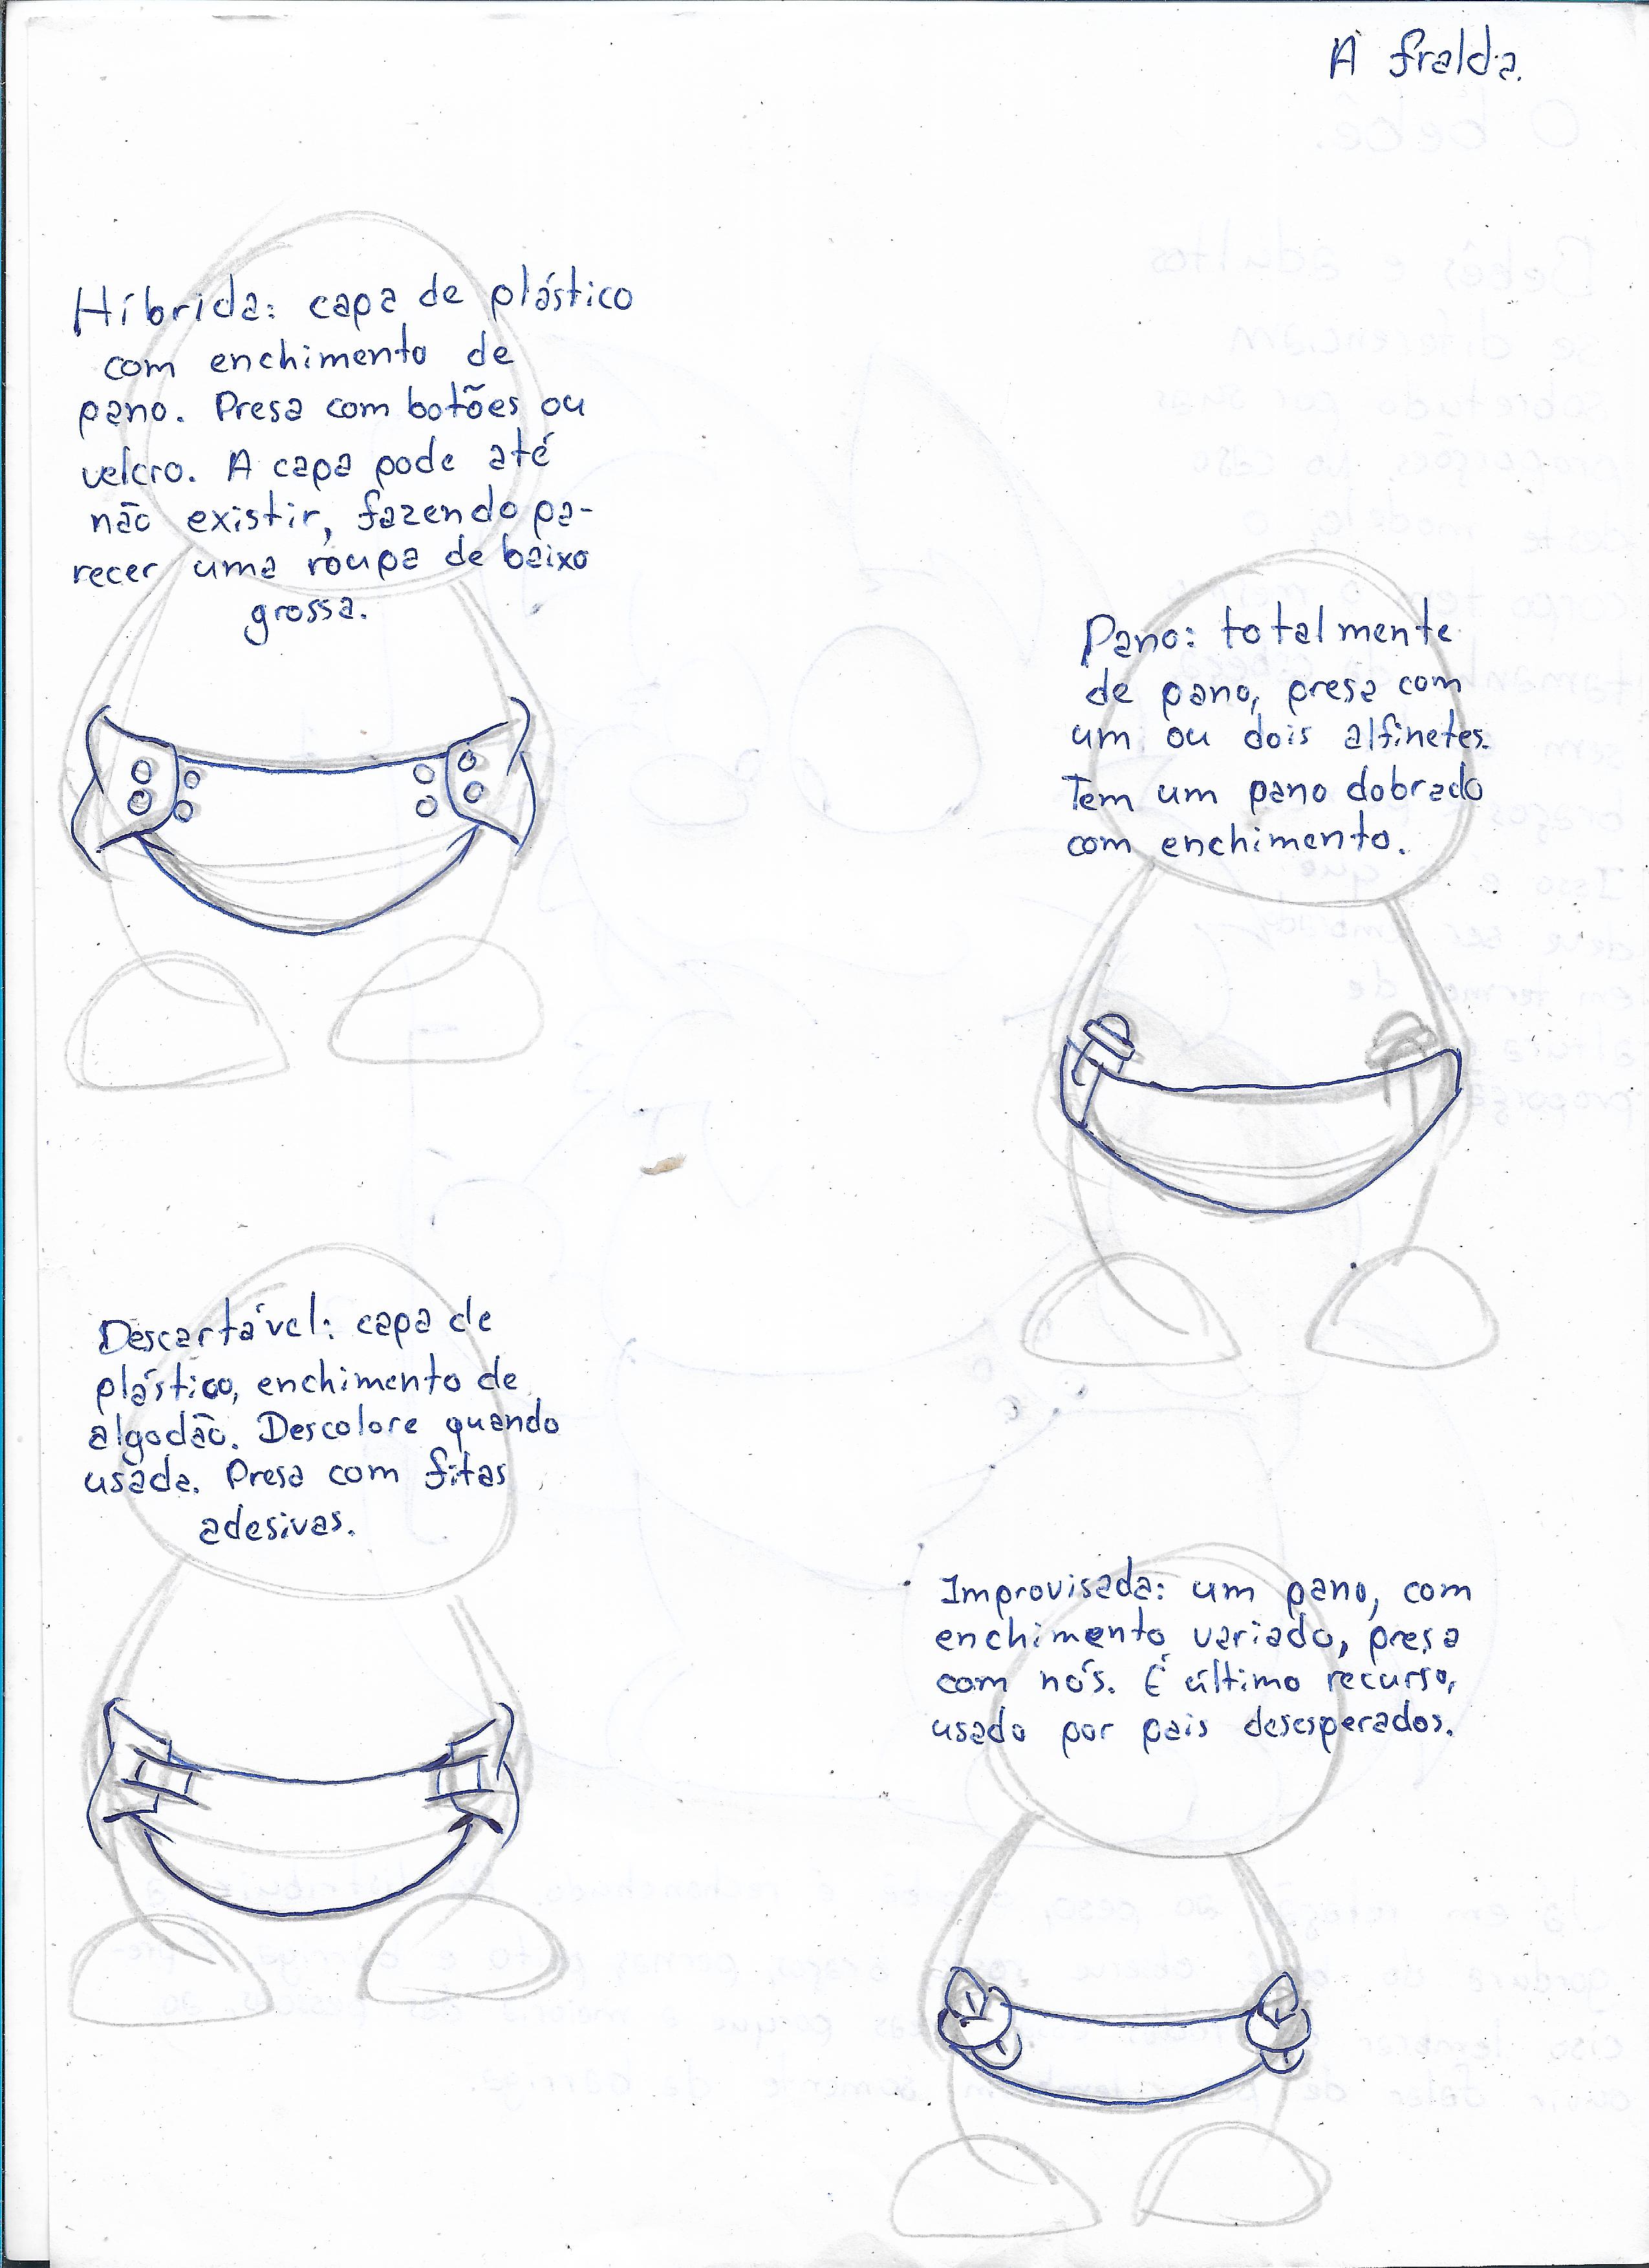 A fralda.
Híbrida: capa de plástico
com enchimento de
pano. Presa com botões ou
velcro. A capa pode até
não existir, fazendo pa-
recer uma roupa de baixo
grossa.
Pano: totalmente
de pano, presa com
um ou dois alfinetes.
Tem um pano dobrado
com enchimento.
Descartável: capa de
plástico, enchimento de
algodão. Descolore quando
usada. Presa com fitas
adesivas.
Improvisada: um pano, com
enchimento variado, presa
com nós. É último recurso,
usado por pais desesperados.